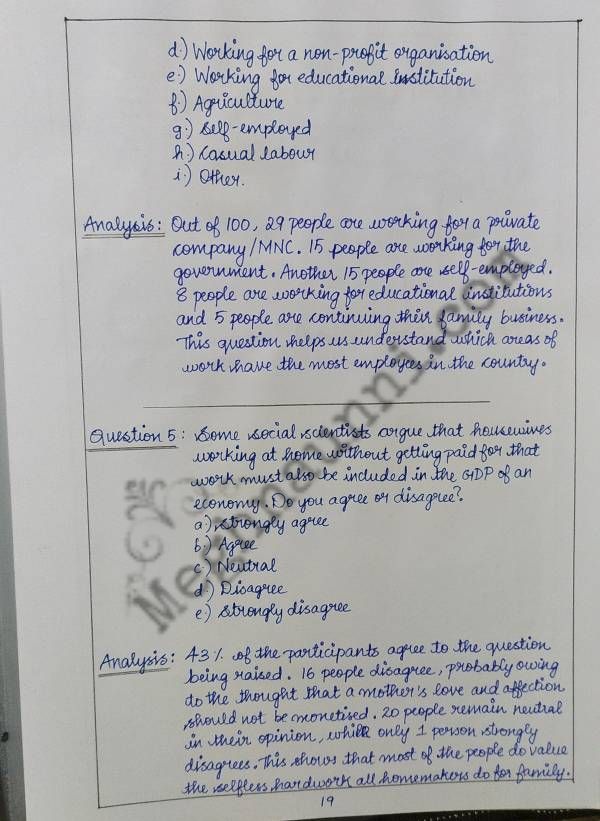 d.) Working for a non-profit organisation
e.) Working for educational institution
f.) Agriculture
g.) Self-employed
h.) Casual labour
i.) Other.
Analysis: Out of 100, 29 people are working for a private
company/MNC. 15 people are working for the
government. Another 15 people are self-employed.
8 people are working for educational institutions
and 5 people are continuing their family business.
This question helps us understand which areas of
work have the most employees in the country.
Question 5: Some social scientists argue that housewives
working at home without getting paid for that
work must also be included in the GDP of an
economy. Do you agree or disagree?
a.) Strongly agree
b.) Agree
c.) Neutral
d.) Disagree
e.) Strongly disagree
Analysis: 43% of the participants agree to the question
being raised. 16 people disagree, probably owing
to the thought that a mother's love and affection
should not be monetised. 20 people remain neutral
in their opinion, while only 1 person strongly
disagrees. This shows that most of the people do value
the selfless hardwork all homemakers do for family.
19
Meghnaunni.com